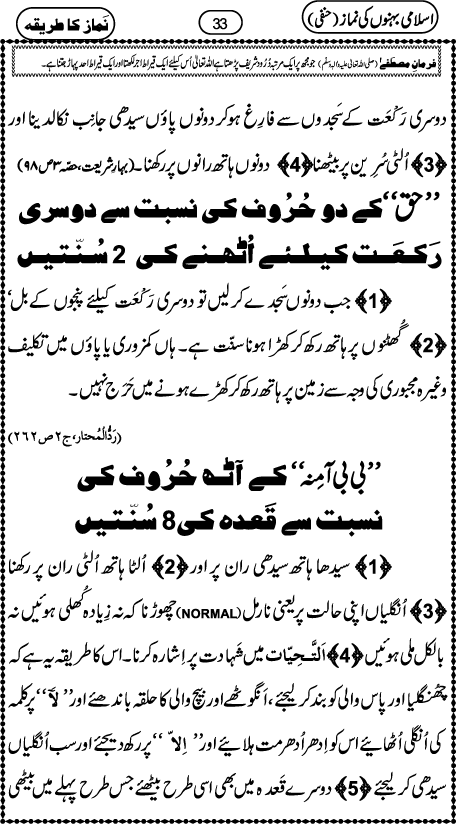 اسلامی بہنوں کی نماز (حنفی)
33
نَماز کا طریقہ
فرمانِ مصطفٰے (صلی اللہ تعالیٰ علیہ والہ وسلم) جو مجھ پر ایک مرتبہ دُرُود شریف پڑھتا ہے اللہ تعالیٰ اُس کیلئے ایک قیراط اجر لکھتا اور ایک قیراط احد پہاڑ جتنا ہے۔
دوسری رَکْعَت کے سَجدوں سے فارِغ ہوکر دونوں پاؤں سیدھی جانِب نکالدینا اور
﴿3﴾ اُلٹی سُرِین پر بیٹھنا ﴿4﴾ دونوں ہاتھ رانوں پر رکھنا۔ (بہارِ شریعت، حصّہ ۳ ص ۹۸)
”حق“ کے دو حُرُوف کی نسبت سے دوسری
رَکعَت کیلئے اُٹھنے کی 2 سُنّتیں
﴿1﴾ جب دونوں سَجدے کرلیں تو دوسری رَکْعَت کیلئے پنجوں کے بل‘
﴿2﴾ گُھٹنوں پر ہاتھ رکھ کر کھڑا ہونا سنّت ہے۔ ہاں کمزوری یا پاؤں میں تکلیف
وغیرہ مجبوری کی وجہ سے زمین پر ہاتھ رکھ کر کھڑے ہونے میں حَرَج نہیں۔
(رَدُّالْمُحتار، ج ۲ ص ۲۶۲)
”بی بی آمِنہ“ کے آٹھ حُرُوف کی
نسبت سے قَعدہ کی 8 سُنّتیں
﴿1﴾ سیدھا ہاتھ سیدھی ران پر اور ﴿2﴾ اُلٹا ہاتھ اُلٹی ران پر رکھنا
﴿3﴾ اُنگلیاں اپنی حالت پر یعنی نارمل (NORMAL) چھوڑنا کہ نہ زِیادہ کُھلی ہوئیں نہ
بالکل ملی ہوئیں ﴿4﴾ اَلتَّحِیّات میں شَہادت پر اِشارہ کرنا۔ اس کا طریقہ یہ ہے کہ
چھنگلیا اور پاس والی کو بند کرلیجئے، اَنگوٹھے اور بیچ والی کا حلقہ باندھئے اور ”لَا“ پر کلمہ
کی اُنگلی اُٹھائیے اس کو اِدھر اُدھر مت ہلائیے اور ”اِلَّا“ پر رکھ دیجئے اور سب اُنگلیاں
سیدھی کرلیجئے ﴿5﴾ دوسرے قَعدہ میں بھی اِسی طرح بیٹھئے جس طرح پہلے میں بیٹھی